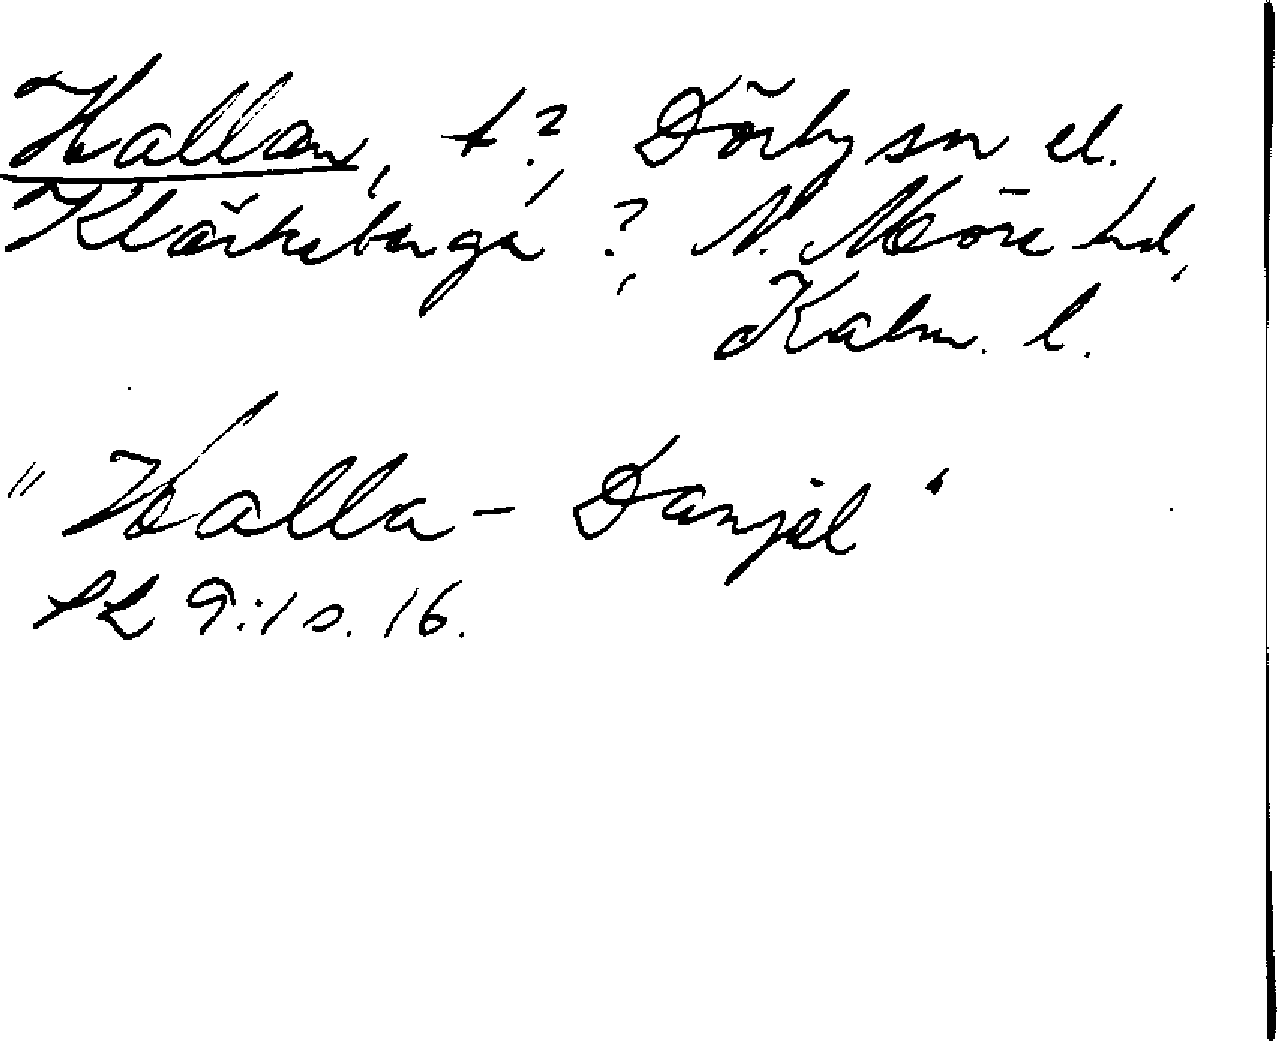 Hallan, t?, Dörby sn el.
Kläckeberga ?, N. Möre hd,
Kalm. l.
"Halla - Danjel"
SL 9:1 s. 16.